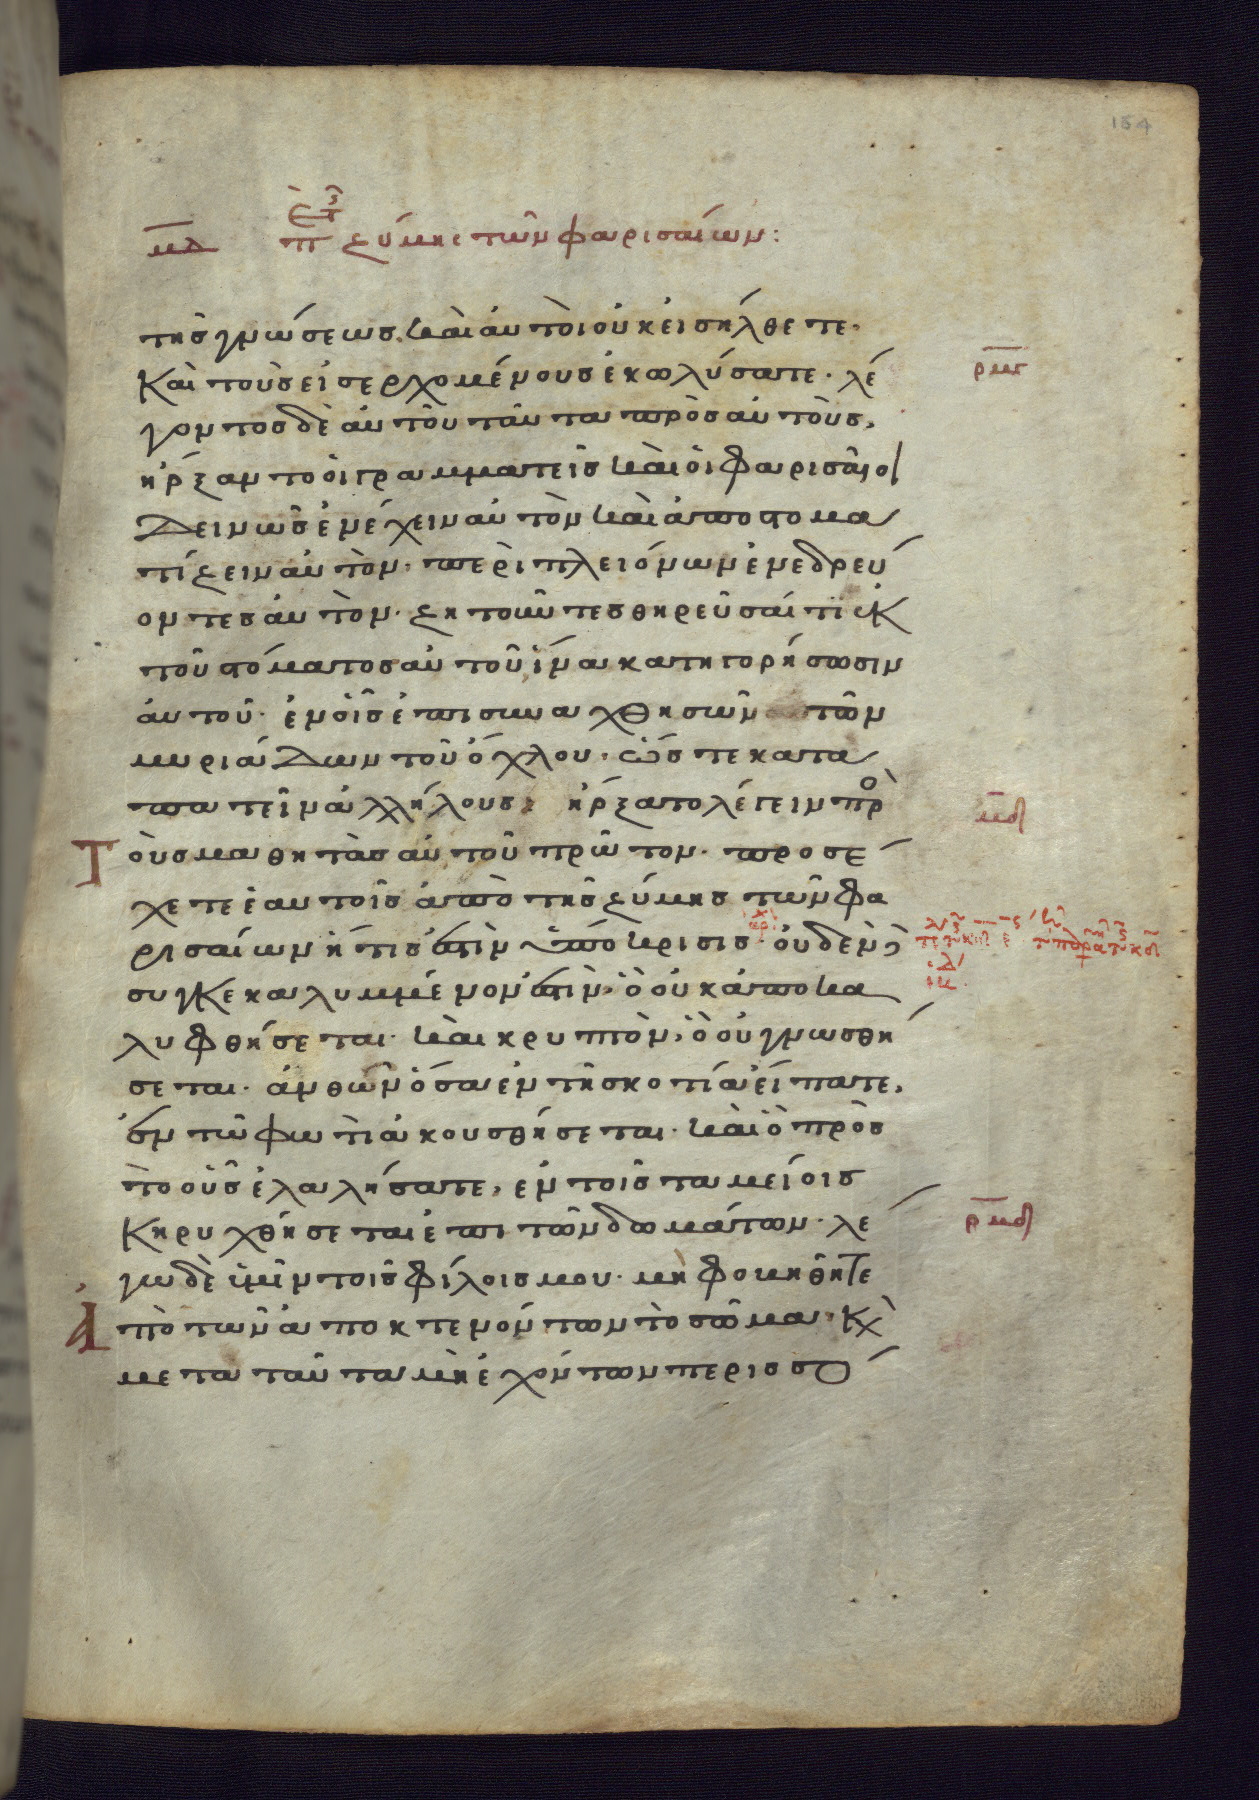 154
μδ π ζύμης τῶν φαρισαίων:
τῆς γνώσεως. καὶ ἀυτοὶ οὐκ εἰσήλθετε·
Καὶ τοὺς εἰσερχομένους ἐκωλύσατε. λέ
γοντος δὲ ἀυτοῦ ταῦτα πρὸς αὐτοὺς,
ἤρξαντο ὁι γραμματεῖς καὶ ὁι φαρισαῖοι
Δεινῶς ἐνέχειν αὐτὸν καὶ ἀποστομα
τίζειν αὐτὸν· περὶ πλειόνων ἐνεδρεύ
οντες ἀυτὸν· ζητοῦντες θηρεῦσαί τι ἐκ
τοῦ στόματος αὐτοῦ ἵνα κατηγορήσωσιν
ἀυτοῦ· ἐν ὁῖς ἐπισυναχθησῶν τῶν
μυριάδων τοῦ ὄχλου· ὥστε κατα
πατεῖν ἀλλήλους; ἤρξατο λέγειν πρ
Τ ὸυς μαθητὰς αὐτοῦ πρῶτον· προσέ
χετε ἑαυτοῖς ἀπὸ τῆς ζύμης τῶν φα
ρισαίων ἥτις ἐστὶν ὑπόκρισις· ὀυδὲν δὲ
συγκεκαλυμμένον ἐστὶν, ὃ οὐκ ἀποκα
λυφθήσεται· καὶ κρυπτὸν, ὃ οὐ γνωσθή
σεται· ἀνθῶν ὅσα ἐν τῇ σκοτίᾳ ἐίπατε,
ἐν τῷ φωτὶ ἀκουσθήσεται· καὶ ὃ πρὸς
τὸ οὖς ἐλαλήσατε, ἐν τοῖς ταμείοις
Κηρυχθήσεται ἐπὶ τῶν δωμάτων· λέ
γω δὲ ὑμῖν τοῖς φίλοις μου· μὴ φοβηθῆτε
Ἀ πὸ τῶν ἀποκτενόντων τὸ σῶμα· κ
μετα ταῦτα μὴ ἐχόντων περισσό
ρμγ
μδ
ρμδ